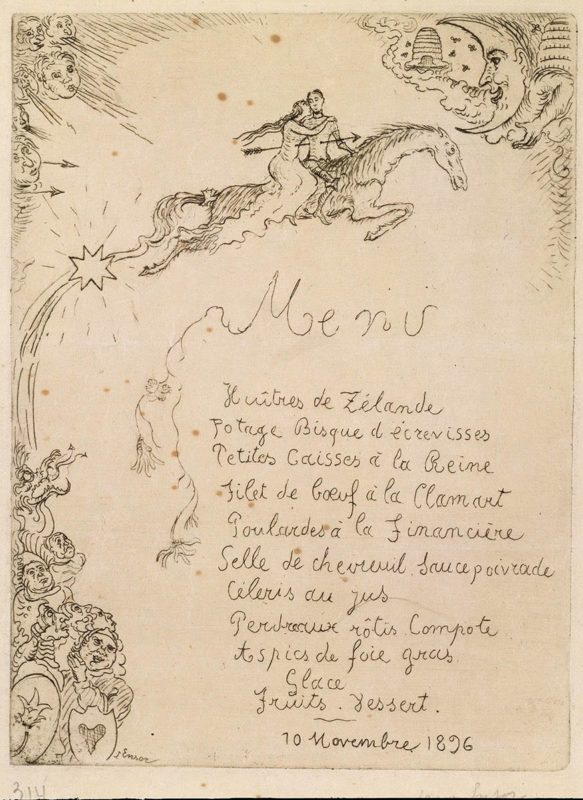 Menu
Huîtres de Zélande
Potage Bisque d'écrevisses
Petites Caisses à la Reine
Filet de bœuf à la Clamart
Poulardes à la Financière
Selle de chevreuil. Sauce poivrade
Céleris au jus
Perdreaux rôtis. Compote
Aspics de foie gras
Glace
Fruits. Dessert.
10 Novembre 1896
J Ensor
314